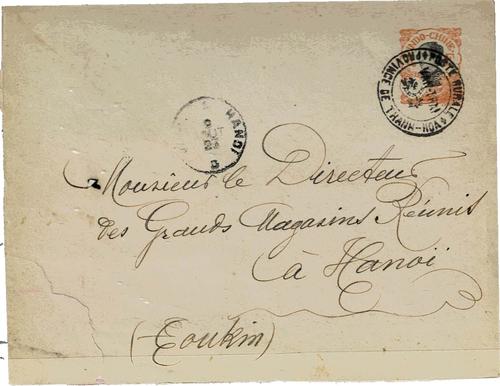 INDO-CHINE
POSTE RURALE
PROVINCE DE THANH-HOA
HANOI
Monsieur le Directeur
des Grands Magasins Réunis
à Hanoï
(Tonkin)